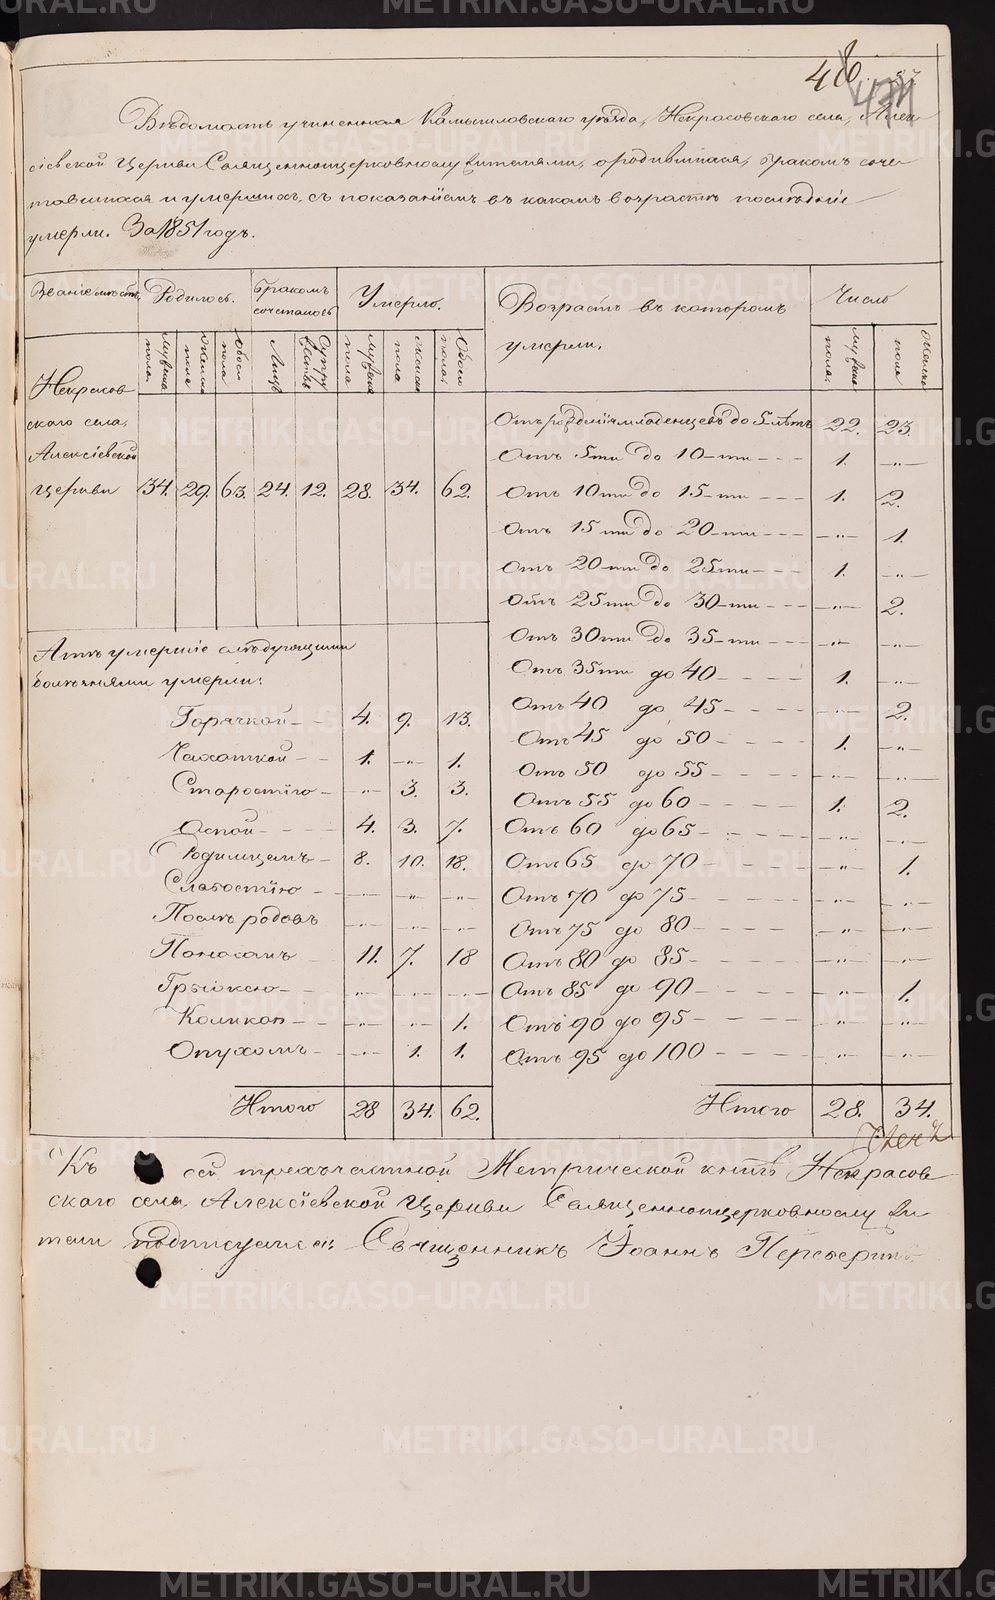 480.
Вѣдомость учиненная Камышловскаго уѣзда, Некрасовскаго села, Алек-
сіевской Церкви Священноцерковнослужителями, о родившихся, бракомъ соче-
тавшихся и умершихъ, съ показаніемъ въ какомъ возрастѣ послѣдніе
умерли. За 1851 годъ.
Званіе мѣстъ, Родилось. Бракомъ сочеталось Умерло. Возрастъ въ которомъ умерли. Число
мужеска пола. женска пола обоего пола Лицъ Супружествъ мужеска пола женска пола Обоего пола. мужеска пола. женска пола
Некрасов-
скаго села,
Алексіевской
Церкви 34. 29. 63. 24. 12. 28. 34. 62.
Отъ рожденія младенцевъ до 5 лѣтъ 22. 23.
Отъ 5ти до 10-ти - - - 1. -„-
Отъ 10ти до 15-ти - - - 1. 2.
Отъ 15ти до 20-ти - - - -„- 1.
Отъ 20ти до 25ти - - - 1. -„-
Отъ 25ти до 30-ти - - - -„- 2.
Отъ 30ти до 35-ти - - - -„- -„-
Отъ 35ти до 40 - - - - 1. -„-
Отъ 40 до 45 - - - - -„- 2.
Отъ 45 до 50 - - - - 1. -„-
Отъ 50 до 55 - - - - -„- -„-
Отъ 55 до 60 - - - - 1. 2.
Отъ 60 до 65 - - - - -„- -„-
Отъ 65 до 70 - - - - -„- 1.
Отъ 70 до 75 - - - - -„- -„-
Отъ 75 до 80 - - - - -„- -„-
Отъ 80 до 85 - - - - -„- -„-
Отъ 85 до 90 - - - - -„- 1.
Отъ 90 до 95 - - - - -„- -„-
Отъ 95 до 100 - - - - -„- -„-
Итого 28. 34.
А тѣ умершіе слѣдующими
болѣзнями умерли:
Горячкой - - 4. 9. 13.
Чахоткой - - 1. -„- 1.
Старостію - -„- 3. 3.
Оспой - - - - 4. 3. 7.
Родимцемъ - 8. 10. 18.
Слабостію - - -„- -„- -„-
Послѣ родовъ -„- -„- -„-
Поносомъ - 11. 7. 18
Грыжею - - - -„- -„- -„-
Коликою - - -„- -„- 1.
Опухомъ - - -„- 1. 1.
Итого 28 34. 62.
Къ сей трехчастной Метрической книгѣ Некрасов-
скаго села, Алексіевской Церкви Священноцерковнослужи-
тели подписуемся: Священникъ Іоаннъ
METRIKI.GASO-URAL.RU